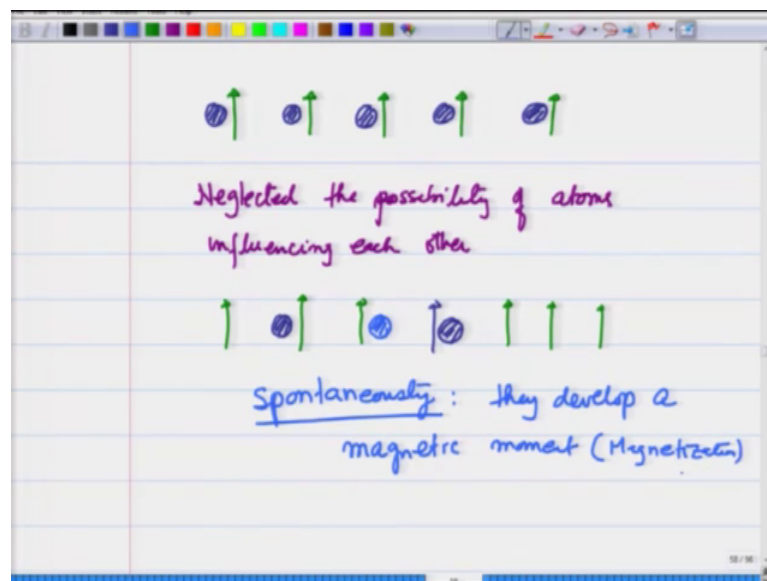 Neglected the possibility of atoms
influencing each other
Spontaneously : they develop a
magnetic moment (Magnetization)
58/98